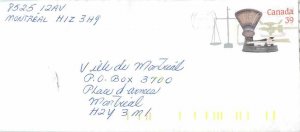 8525 12AV
MONTRÉAL H1Z 3H9
Canada
39
Ville de Montreal
P.O. Box 3700
Place d'armes
Montreal
H2Y 3M1